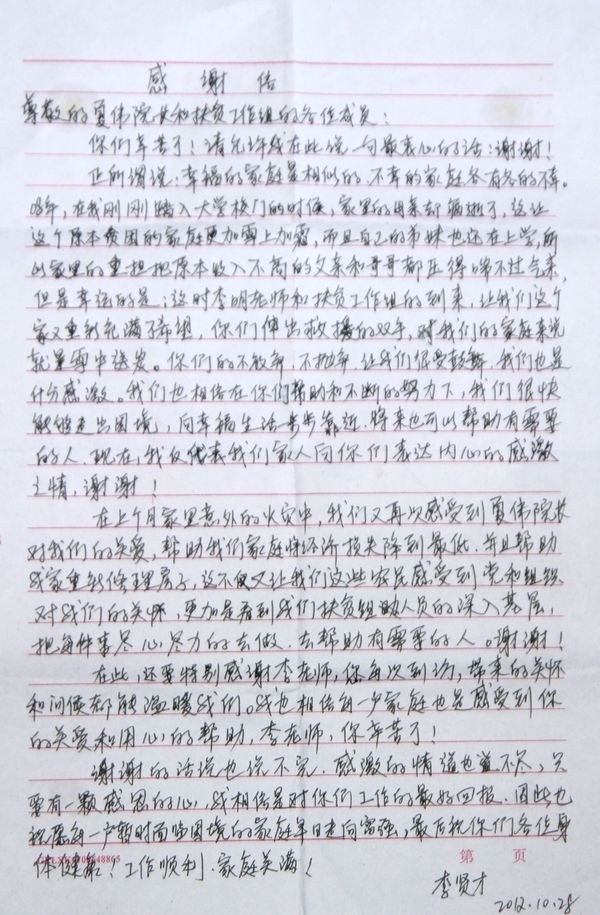 感谢信
尊敬的夏伟院长和扶贫工作组的各位成员：
你们辛苦了！请允许我在此说一句最衷心的话：谢谢！
正所谓说：幸福的家庭是相似的，不幸的家庭各有各的不幸。
08年，在我刚刚踏入大学校门的时候，家里的母亲却病逝了，这让
这个原本贫困的家庭更加雪上加霜，而且自己的弟妹也还在上学，所
以家里的重担把原本收入不高的父亲和哥哥都压得喘不过气来，
但是幸运的是：这时李明老师和扶贫工作组的到来，让我们这个
家又重新充满了希望，你们伸出救援的双手，对我们的家庭来说
就是雪中送炭。你们的不放弃、不抛弃，让我们很受鼓舞，我们也是
十分感激。我们也相信在你们帮助和不断的努力下，我们很快
能够走出困境，向幸福生活步步靠近，将来也可以帮助有需要
的人。现在，我仅代表我们家人向你们表达内心的感激
之情，谢谢！
在上个月家里意外的火灾中，我们又再次感受到夏伟院长
对我们的关爱，帮助我们家庭将经济损失降到最低，并且帮助
我家重新修理房子，这不仅又让我们这些农民感受到党和组织
对我们的关怀，更加是看到我们扶贫组人员的深入基层，
把每件事尽心尽力的去做，去帮助有需要的人。谢谢！
在此，还要特别感谢李老师，你每次到访，带来的关怀
和问候都能温暖我们。我也相信每一户家庭也是感受到你
的关爱和用心的帮助，李老师，你辛苦了！
谢谢的话说也说不完，感激的情道也道不尽，只
要有一颗感恩的心，我相信是对你们工作的最好回报。因此也
祝愿每一户暂时面临困境的家庭早日走向富强，最后祝你们各位身
体健康！工作顺利、家庭美满！
第 页
李贤才
2012.10.28